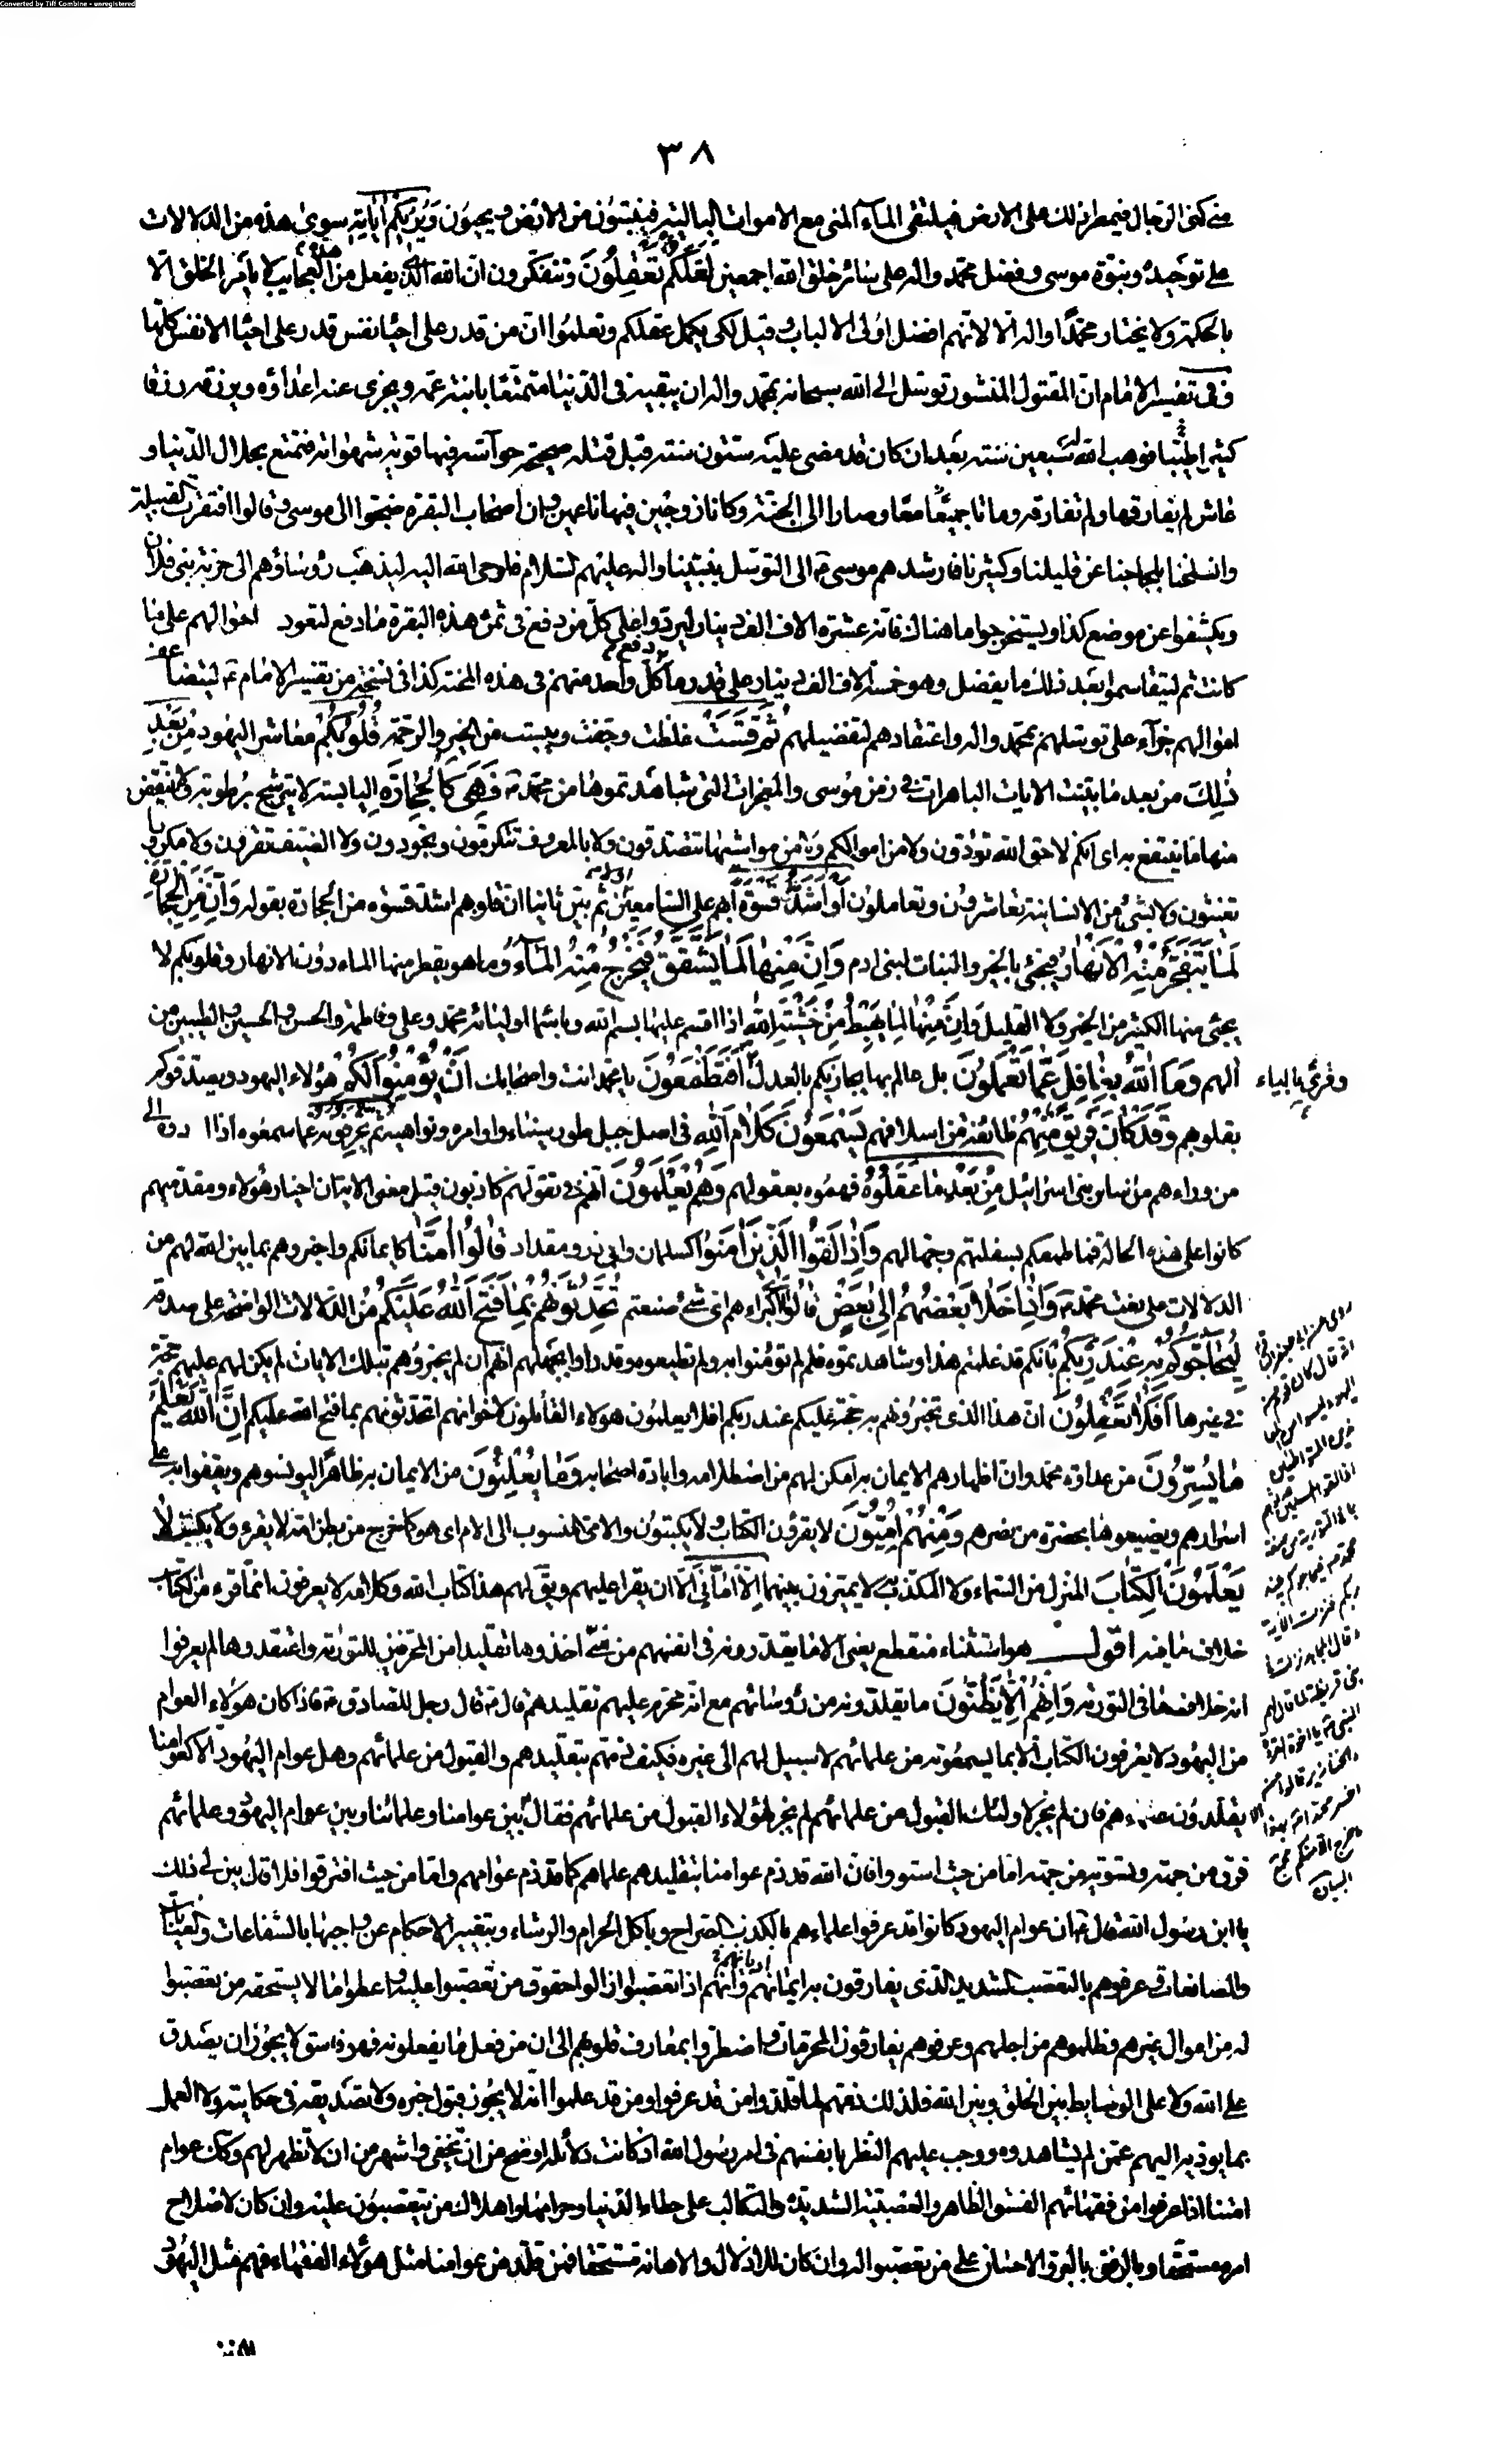 Converted by Tiff Combine - unregistered
٣٨
منى كمنى الرجال فيمطر ذلك على الارض فيلتقى الماء المنى مع الاموات البالية فينبتون من الارض ويحيون وَيُرِيكُمْ آيَاتِهِ سوى هذه من الدلالات
على توحيده ونبوة موسى وفضل محمد واله على سائر خلق الله اجمعين لَعَلَّكُمْ تَعْقِلُونَ وتتفكرون ان الله الذى يفعل من العجايب لا يامر الخلق الا
بالحكمة ولا يختار محمدا واله الا لانهم افضل اولى الالباب وقيل لكى يكمل عقلكم وتعلموا ان من قدر على احيا نفس قدر على احيا الانفس كلها
وفى تفسير الامام ان المقتول المنشور توسل الى الله سبحانه بمحمد واله ان يبقيه فى الدنيا متمتعا بابنة عمه ويجزى عنه اعداؤه ويرزقه رزقا
كثيرا طيبا فوهب الله له سبعين سنة بعد ان كان قد مضى عليه ستون سنة قبل قتله صحيحة حواسه فيها قوية شهواته فتمتع بحلال الدنيا و
عاش لم يفارقها ولم تفارقه وماتا جميعا معا وصارا الى الجنة وكانا زوجين فيها ناعمين وان اصحاب البقرة ضجوا الى موسى وقالوا افتقرت القبيلة
وانسلخنا بلجاجنا عن قليلنا وكثيرنا فارشدهم موسى ع الى التوسل بنبينا واله عليهم السلام فاوحى الله اليه ليذهب رؤساؤهم الى خربة بنى فلان
ويكشفوا عن موضع كذا ويستخرجوا ما هناك فانه عشرة الاف الف دينار ليردوا على كل من دفع فى ثمن هذه البقرة ما دفع لتعود احوالهم على ما
كانت ثم ليتقاسموا بعد ذلك ما يفضل وهو خمسة الاف الف دينار على قدر ما دفع كل واحد منهم فى هذه المحنة كذا فى نسخة من تفسير الامام ع ليتضاعف
اموالهم جزآء على توسلهم بمحمد واله واعتقادهم لتفضيلهم ثُمَّ قَسَتْ غلظت وجفت ويبست من الخير والرحمة قُلُوبُكُمْ معاشر اليهود مِنْ بَعْدِ
ذَلِكَ من بعد ما تبينت الايات الباهرات فى زمن موسى والمعجزات التى شاهدتموها من محمد ص فَهِيَ كَالْحِجَارَةِ اليابسة لا يترشح برطوبة ولا ينتفض
منها ما ينتفع به اى انكم لا حق الله تؤدون ولا من اموالكم ومن مواشيها تتصدقون ولا بالمعروف تتكرمون وتجودون ولا الضيف تقرون ولا مكروبا
تغيثون ولا بشئ من الانسانية تعاشرون وتعاملون أَوْ أَشَدُّ قَسْوَةً ابهم على السامعين ثم بين ثانيا ان قلوبهم اشد قسوة من الحجارة بقوله وَإِنَّ مِنَ الْحِجَارَةِ
لَمَا يَتَفَجَّرُ مِنْهُ الْأَنْهَارُ فيجئ بالخير والنبات لبنى ادم وَإِنَّ مِنْهَا لَمَا يَشَّقَّقُ فَيَخْرُجُ مِنْهُ الْمَاءُ وما هو يقطر منها الماء دون الانهار وقلوبكم لا
يجئ منها الكثير من الخير ولا القليل وَإِنَّ مِنْهَا لَمَا يَهْبِطُ مِنْ خَشْيَةِ اللَّهِ اذا اقسم عليها بسم الله وباسماء اوليائه محمد وعلى وفاطمة والحسن والحسين والطيبين من
الهم وَمَا اللَّهُ بِغَافِلٍ عَمَّا تَعْمَلُونَ بل عالم بها يجازيكم بالعدل أَفَتَطْمَعُونَ يا محمد انت واصحابك أَنْ يُؤْمِنُوا لَكُمْ هؤلاء اليهود ويصدقوكم
وقرئ بالياء
بقلوبهم وَقَدْ كَانَ فَرِيقٌ مِنْهُمْ طائفة من اسلافهم يَسْمَعُونَ كَلَامَ اللَّهِ فى اصل جبل طور سيناء واوامره ونواهيه ثُمَّ يُحَرِّفُونَهُ عما سمعوه اذا ادوه الى
من وراءهم من ساير بنى اسرائيل مِنْ بَعْدِ مَا عَقَلُوهُ فهموه بعقولهم وَهُمْ يَعْلَمُونَ انهم فى تقولهم كاذبون قيل معنى الاية ان احبار هؤلاء ومقدميهم
كانوا على هذه الحالة فما طمعكم بسفلتهم وجهالهم وَإِذَا لَقُوا الَّذِينَ آمَنُوا كسلمان وابى ذر ومقداد قَالُوا آمَنَّا كايمانكم واخبروهم بما بين الله لهم من
الدلالات على بعث محمد ص وَإِذَا خَلَا بَعْضُهُمْ إِلَى بَعْضٍ قَالُوا كبراءهم اى شئ صنعتم أَتُحَدِّثُونَهُمْ بِمَا فَتَحَ اللَّهُ عَلَيْكُمْ من الدلالات الواضحة على صدقه
لِيُحَاجُّوكُمْ بِهِ عِنْدَ رَبِّكُمْ بانكم قد علمتم هذا وشاهدتموه فلم لم تؤمنوا به ولم تطيعوه وقدروا بجهلهم انهم ان لم يخبروهم بتلك الايات لم يكن لهم عليهم حجة
فى غيرها أَفَلَا تَعْقِلُونَ ان هذا الذى تخبرونهم به حجة عليكم عند ربكم افلا يعلمون هؤلاء القائلون لاخوانهم اتحدثونهم بما فتح الله عليكم إِنَّ اللَّهَ يَعْلَمُ
مَا يُسِرُّونَ من عداوة محمد وان اظهارهم الايمان به امكن لهم من اصطلامه وابادة اصحابه وَمَا يُعْلِنُونَ من الايمان به ظاهرا ليونسوهم ويقفوا به على
اسرارهم ويضيعوها بحضرة من يضرهم وَمِنْهُمْ أُمِّيُّونَ لا يقرؤن الكتاب ولا يكتبون والامى المنسوب الى الام اى هو كما خرج من بطن امه لا يقرء ولا يكتب لَا
يَعْلَمُونَ الْكِتَابَ المنزل من السماء ولا المكذب به لا يميزون بينهما إِلَّا أَمَانِيَّ الا ان يقرأ عليهم ويق لهم هذا كتاب الله وكلامه لا يعرفون انما قرء من الكتاب
خلاف ما فيه اقول هو استثناء منقطع يعنى الا ما يقدرونه فى انفسهم من منى اخذوها تقليدا من المحرفين للتورية واعتقدوها لم يعرفوا
انه خلاف ما فى التورية وَإِنْ هُمْ إِلَّا يَظُنُّونَ ما يقلدونه من رؤسائهم مع انه محرم عليهم تقليدهم قال ع قال رجل للصادق ع فاذا كان هؤلاء العوام
من اليهود لا يعرفون الكتاب الا بما يسمعونه من علمائهم لا سبيل لهم الى غيره فكيف ذمهم بتقليدهم والقبول من علمائهم وهل عوام اليهود الا كعوامنا
يقلدون علماءهم فان لم يجز لاولئك القبول من علمائهم لم يجز لهؤلاء القبول من علمائهم فقال ع بين عوامنا وعلمائنا وبين عوام اليهود وعلمائهم
فرق من جهة وتسوية من جهة اما من حيث استووا فان الله قد ذم عوامنا بتقليدهم علماءهم كما قد ذم عوامهم واما من حيث افترقوا فلا قال بين لى ذلك
يا ابن رسول الله قال ع ان عوام اليهود كانوا قد عرفوا علماءهم بالكذب الصراح وباكل الحرام والرشاء وبتغيير الاحكام عن واجبها بالشفاعات والعنايات
والمصانعات وعرفوهم بالتعصب الشديد الذى يفارقون به اديانهم وانهم اذا تعصبوا ازالوا حقوق من تعصبوا عليه واعطوا ما لا يستحقه من تعصبوا
له من اموال غيرهم وظلموهم من اجلهم وعرفوهم يفارقون المحرمات واضطروا بمعارف قلوبهم الى ان من فعل ما يفعلونه فهو فاسق لا يجوز ان يصدق
على الله ولا على الوسايط بين الخلق وبين الله فلذلك ذمهم لما قلدوا من قد عرفوا ومن قد علموا انه لا يجوز قبول خبره ولا تصديقه فى حكايته ولا العمل
بما يؤديه اليهم عمن لم يشاهدوه ووجب عليهم النظر بانفسهم فى امر رسول الله اذ كانت دلائله اوضح من ان تخفى واشهر من ان لا تظهر لهم وكك عوام
امتنا اذا عرفوا من فقهائهم الفسق الظاهر والعصبية الشديدة والتكالب على حطام الدنيا وحرامها واهلاك من يتعصبون عليه وان كان لاصلاح
امره مستحقا وبالرفق بالبر والاحسان على من تعصبوا له وان كان للاذلال والاهانة مستحقا فمن قلد من عوامنا مثل هؤلاء الفقهاء فهم مثل اليهود
انه قال كان قوم من